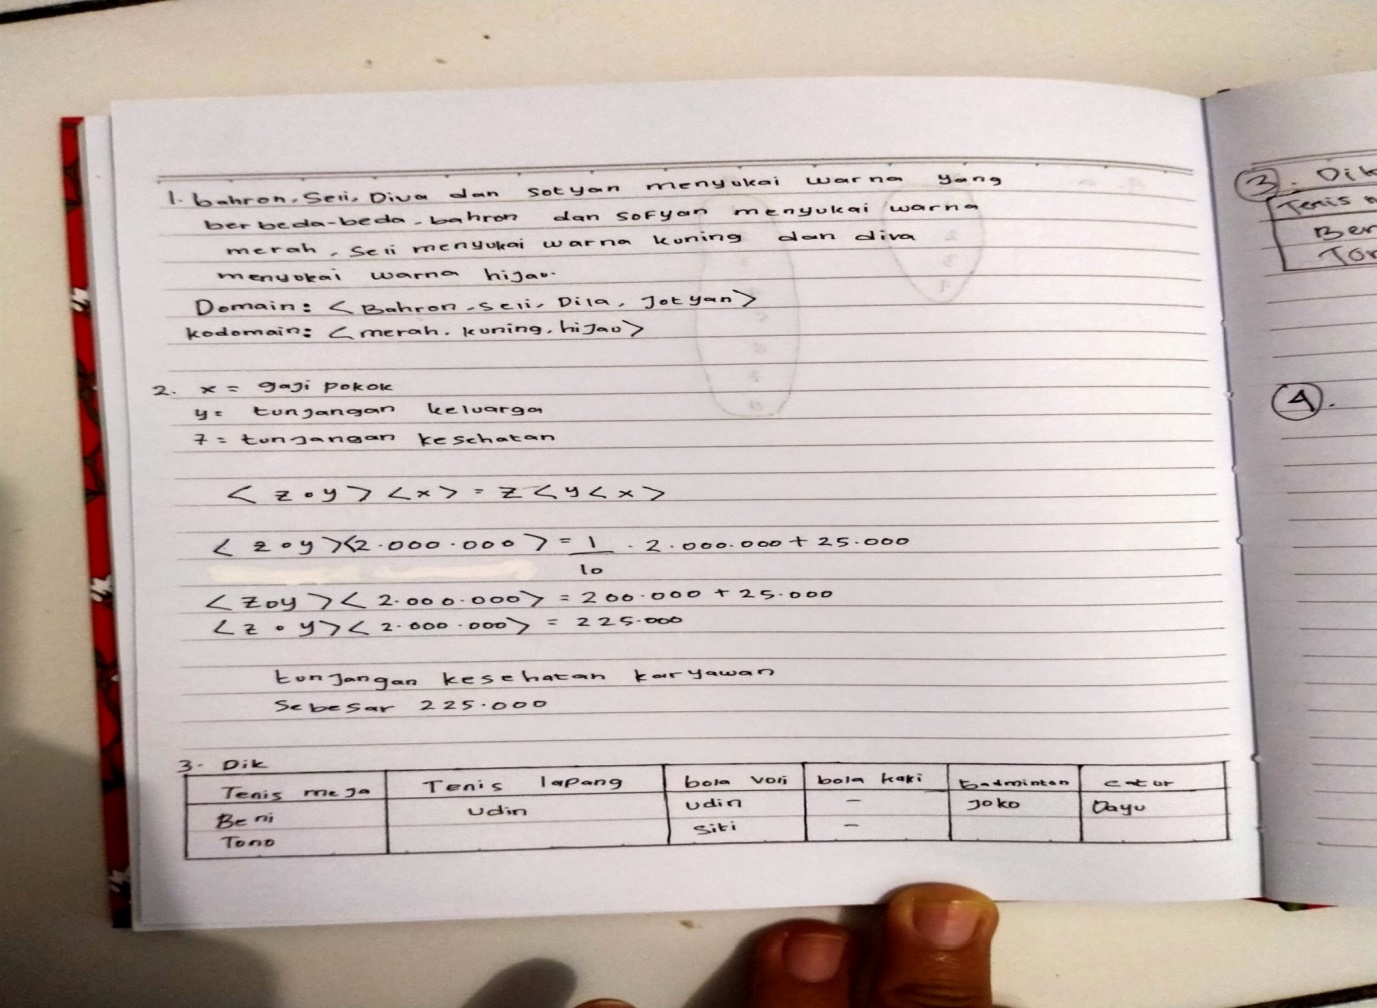 1. bahron, Seli, Diva dan Sofyan menyukai warna yang
berbeda-beda. bahron dan Sofyan menyukai warna
merah, Seli menyukai warna kuning dan diva
menyukai warna hijau.
Domain: < Bahron, Seli, Dila, Jotyan>
kodomain: < merah, kuning, hijau>
2. x = gaji pokok
y = tunjangan keluarga
z = tunjangan kesehatan
< z o y > <x> = z < y < x >
< z o y ><2.000.000> = 1/10 . 2.000.000 + 25.000
<zoy >< 2.000.000> = 200.000 + 25.000
<z o y>< 2.000.000> = 225.000
tunjangan kesehatan karyawan
Sebesar 225.000
3. Dik
Tenis meja Tenis lapang bola voli bola kaki badminton catur
Beni Udin Udin - Joko Dayu
Tono Siti -
3. Dik
Tenis
Ber
Ton
4.